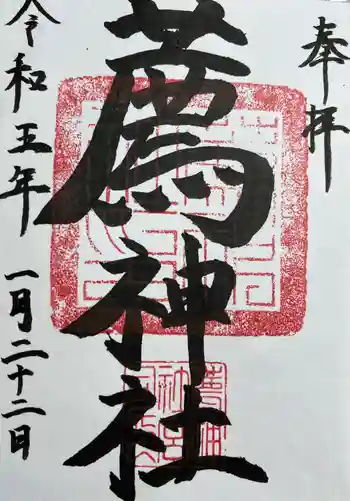 奉拝
薦神社
令和五年
一月二十二日